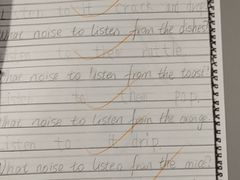 Listen to it crack and
What noise to listen from the dishes?
Listen to them rattle.
What noise to listen from the toast?
Listen to them pop.
What noise to listen from the
Listen to it drip.
What noise to listen from the mice?